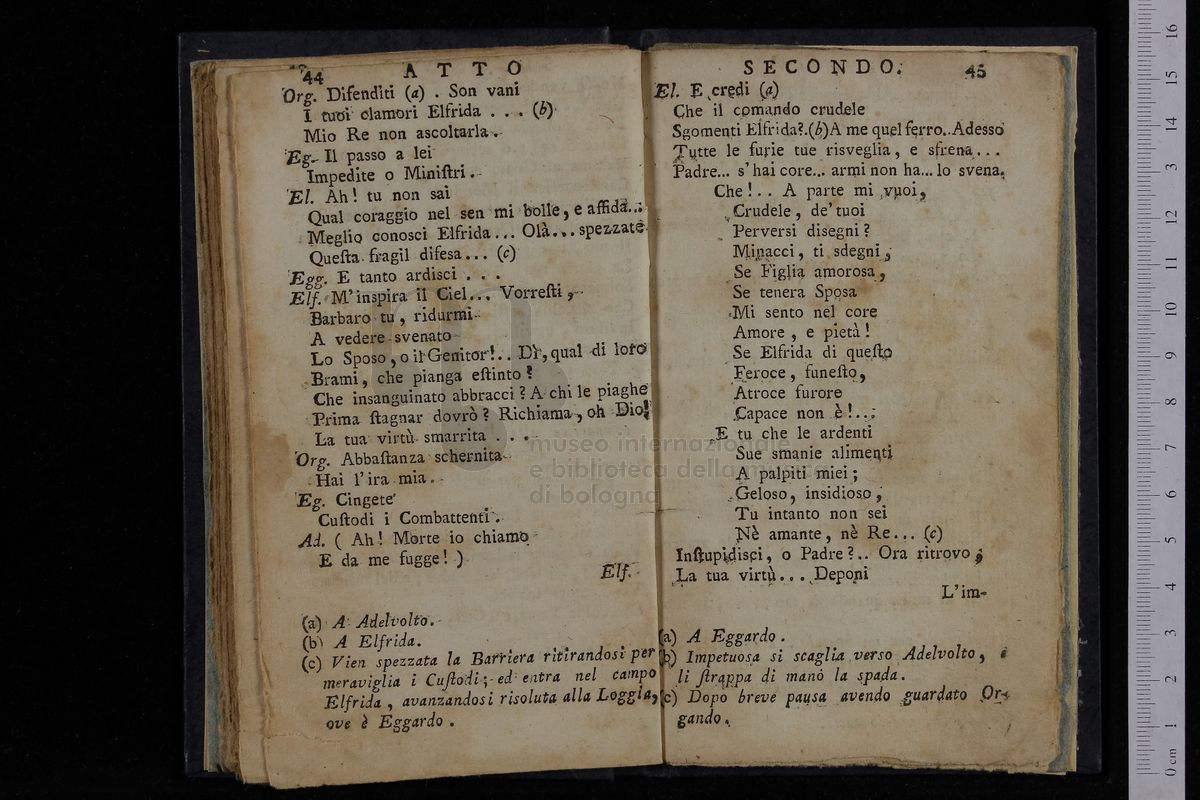 44 ATTO
Org. Difenditi (a) . Son vani
I tuoi clamori Elfrida . . . (b)
Mio Re non ascoltarla.
Eg. Il passo a lei
Impedite o Miniſtri.
El. Ah! tu non sai
Qual coraggio nel sen mi bolle, e affida...
Meglio conosci Elfrida... Olà... spezzate
Queſta fragil difesa... (c)
Egg. E tanto ardisci . . .
Elf. M'inspira il Ciel... Vorreſti,
Barbaro tu, ridurmi
A vedere svenato
Lo Sposo, o il Genitor!.. Dì, qual di loro
Brami, che pianga eſtinto?
Che insanguinato abbracci? A chi le piaghe
Prima ſtagnar dovrò? Richiama, oh Dio!
La tua virtù smarrita . . .
Org. Abbaſtanza schernita
Hai l'ira mia.
Eg. Cingete
Cuſtodi i Combattenti.
Ad. ( Ah! Morte io chiamo
E da me fugge! )
Elf.
(a) A Adelvolto.
(b) A Elfrida.
(c) Vien spezzata la Barriera ritirandosi per
meraviglia i Cuſtodi; ed entra nel campo
Elfrida, avanzandosi risoluta alla Loggia,
ove è Eggardo.
SECONDO. 45
El. E credi (a)
Che il comando crudele
Sgomenti Elfrida?.(b) A me quel ferro.. Adesso
Tutte le furie tue risveglia, e sfrena...
Padre... s'hai core... armi non ha... lo svena.
Che!.. A parte mi vuoi,
Crudele, de' tuoi
Perversi disegni?
Minacci, ti sdegni,
Se Figlia amorosa,
Se tenera Sposa
Mi sento nel core
Amore, e pietà!
Se Elfrida di queſto
Feroce, funeſto,
Atroce furore
Capace non è!...
E tu che le ardenti
Sue smanie alimenti
A palpiti miei;
Geloso, insidioso,
Tu intanto non sei
Nè amante, nè Re... (c)
Inſtupidisci, o Padre?.. Ora ritrovo
La tua virtù... Deponi
L'im-
(a) A Eggardo.
(b) Impetuosa si scaglia verso Adelvolto, e
li ſtrappa di mano la spada.
(c) Dopo breve pausa avendo guardato Or-
gando.
museo internazionale
e biblioteca della musica
di bologna